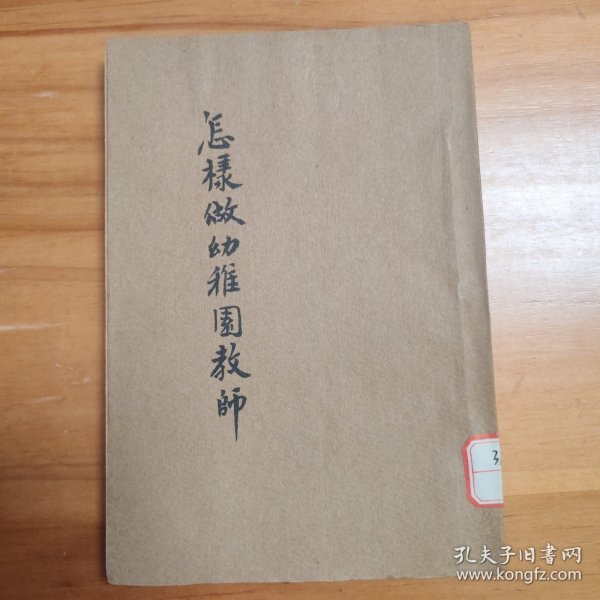 怎樣做幼稚園教師
3
孔夫子旧書网
www.kongfz.com